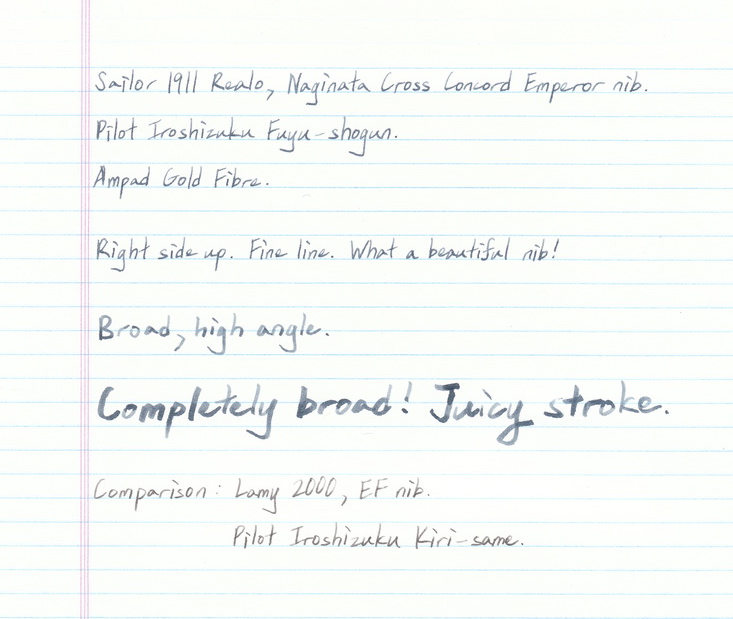 Sailor 1911 Realo, Naginata Cross Concord Emperor nib.
Pilot Iroshizuku Fuyu-shogun.
Ampad Gold Fibre.
Right side up. Fine line. What a beautiful nib!
Broad, high angle.
Completely broad! Juicy stroke.
Comparison: Lamy 2000, EF nib.
Pilot Iroshizuku Kiri-same.